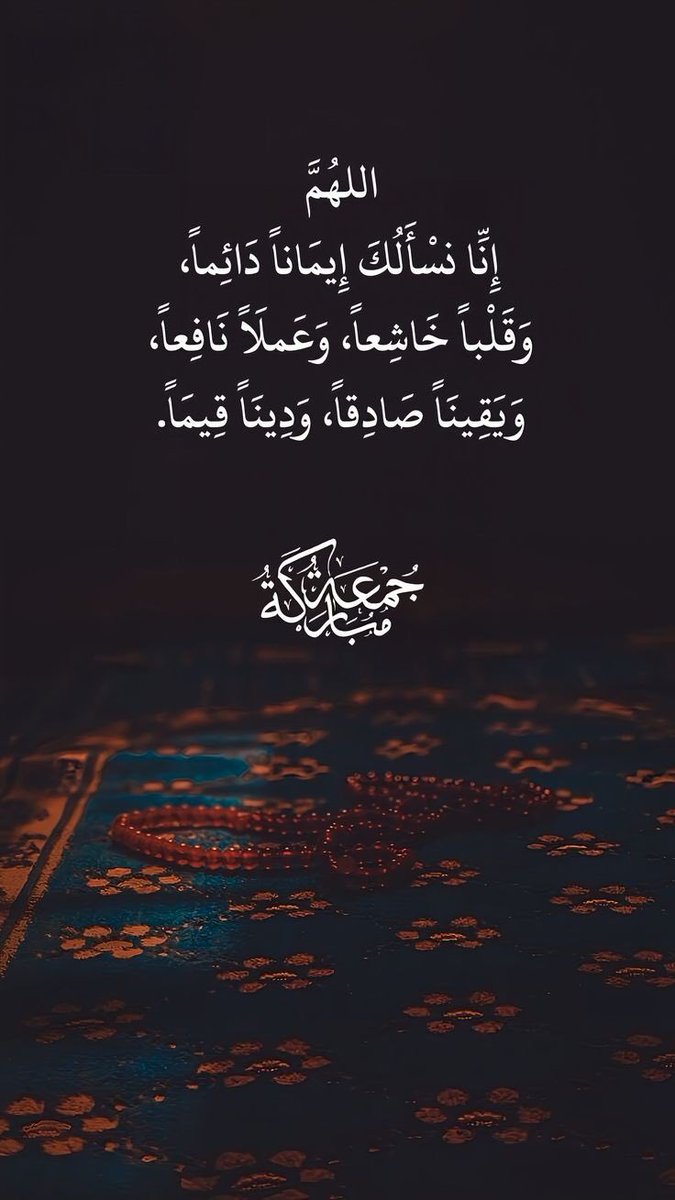 اللهُمَّ
إِنِّا نسْأَلُكَ إِيمَاناً دَائِماً،
وَقَلْباً خَاشِعاً، وَعَملَاً نَافِعاً،
وَيَقِينَاً صَادِقاً، وَدِينَاً قِيمَاً.
جُمْعَة
مُبَارَكَةُ